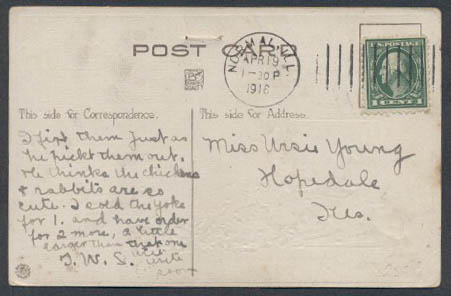 POST CARD
NORMAL, ILL.
APR 19
1-30 P
1916
U.S. POSTAGE
1 CENT 1
This side for Correspondence.
This side for Address.
I first them just as
he pickt them out.
He thinks the chickens
& rabbits are so
cute. I sold the yoke
for 1. and have order
for 2 more, a little
larger than that one
I.W.S. will
write
soon
Miss Ursie Young
Hopedale
Ills.